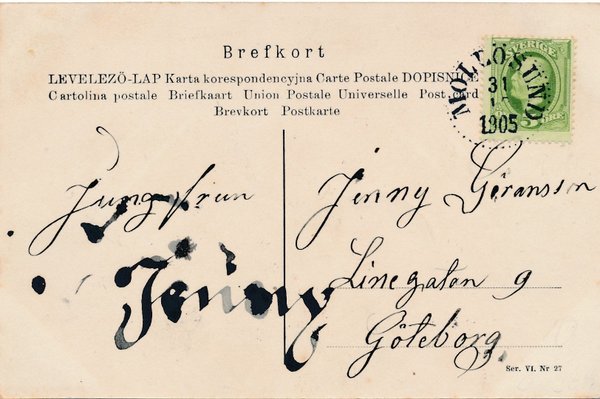 Brefkort
LEVELEZÖ-LAP Karta korespondencyjna Carte Postale DOPISNICE
Cartolina postale Briefkaart Union Postale Universelle Post card
Brevkort Postkarte
SVERIGE
MOLLÖSUND
31
1905
5 ÖRE
Jungfrun
Jenny Göransson
Jenny
Linegatan 9
Göteborg
Ser. VI. Nr 27